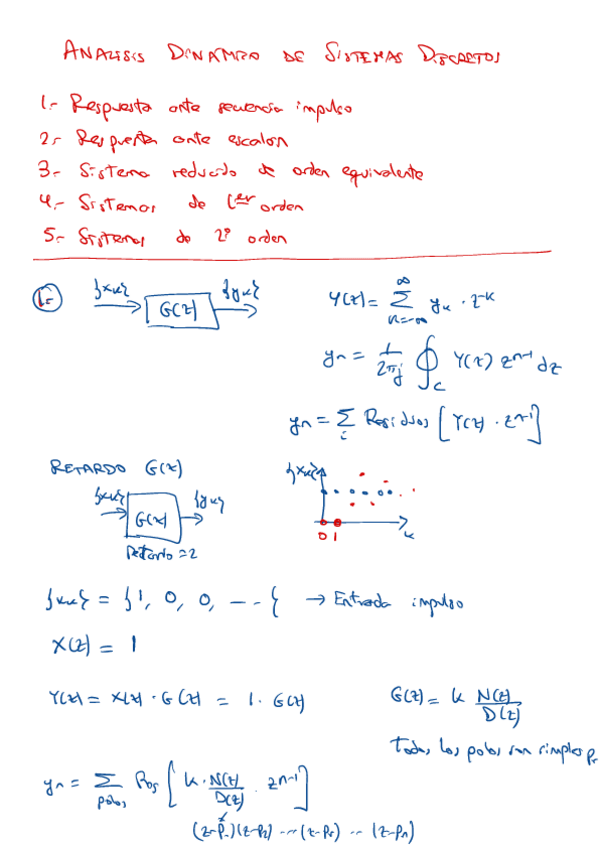 ANALISIS DINAMICO DE SISTEMAS DISCRETOS
1.- Respuesta ante secuencia impulso
2.- Respuesta ante escalón
3.- Sistema reducido de orden equivalente
4.- Sistemas de 1er orden
5.- Sistemas de 2º orden
1.- {xk} G(z) {yk} Y(z) = ∞ Σ k=-∞ yk · z^-k
yn = 1/2πj ∮c Y(z) z^n-1 dz
yn = Σ i Residuos [Y(z) · z^n-1]
RETARDO G(z) {xk}
{xk} G(z) {yk}
0 1 k
Retardo = 2
{xk} = {1, 0, 0, --- { → Entrada impulso
X(z) = 1
Y(z) = X(z) · G(z) = 1 · G(z) G(z) = k N(z)/D(z)
Todos los polos son simples pr
yn = Σ polos Res [k · N(z)/D(z) · z^n-1]
(z-p1)(z-p2) ... (z-pr) ... (z-pn)